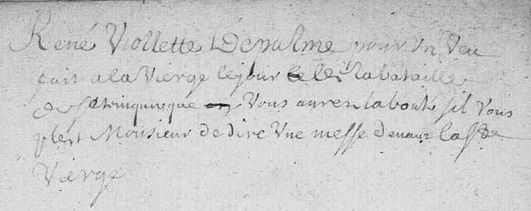 René Viollette Denalme pour un veu
fait a la Vierge le jour de la bataille
Vous aurez la bonté sil vous
plest Monsieur de dire Vne messe devant la Ste
Vierge